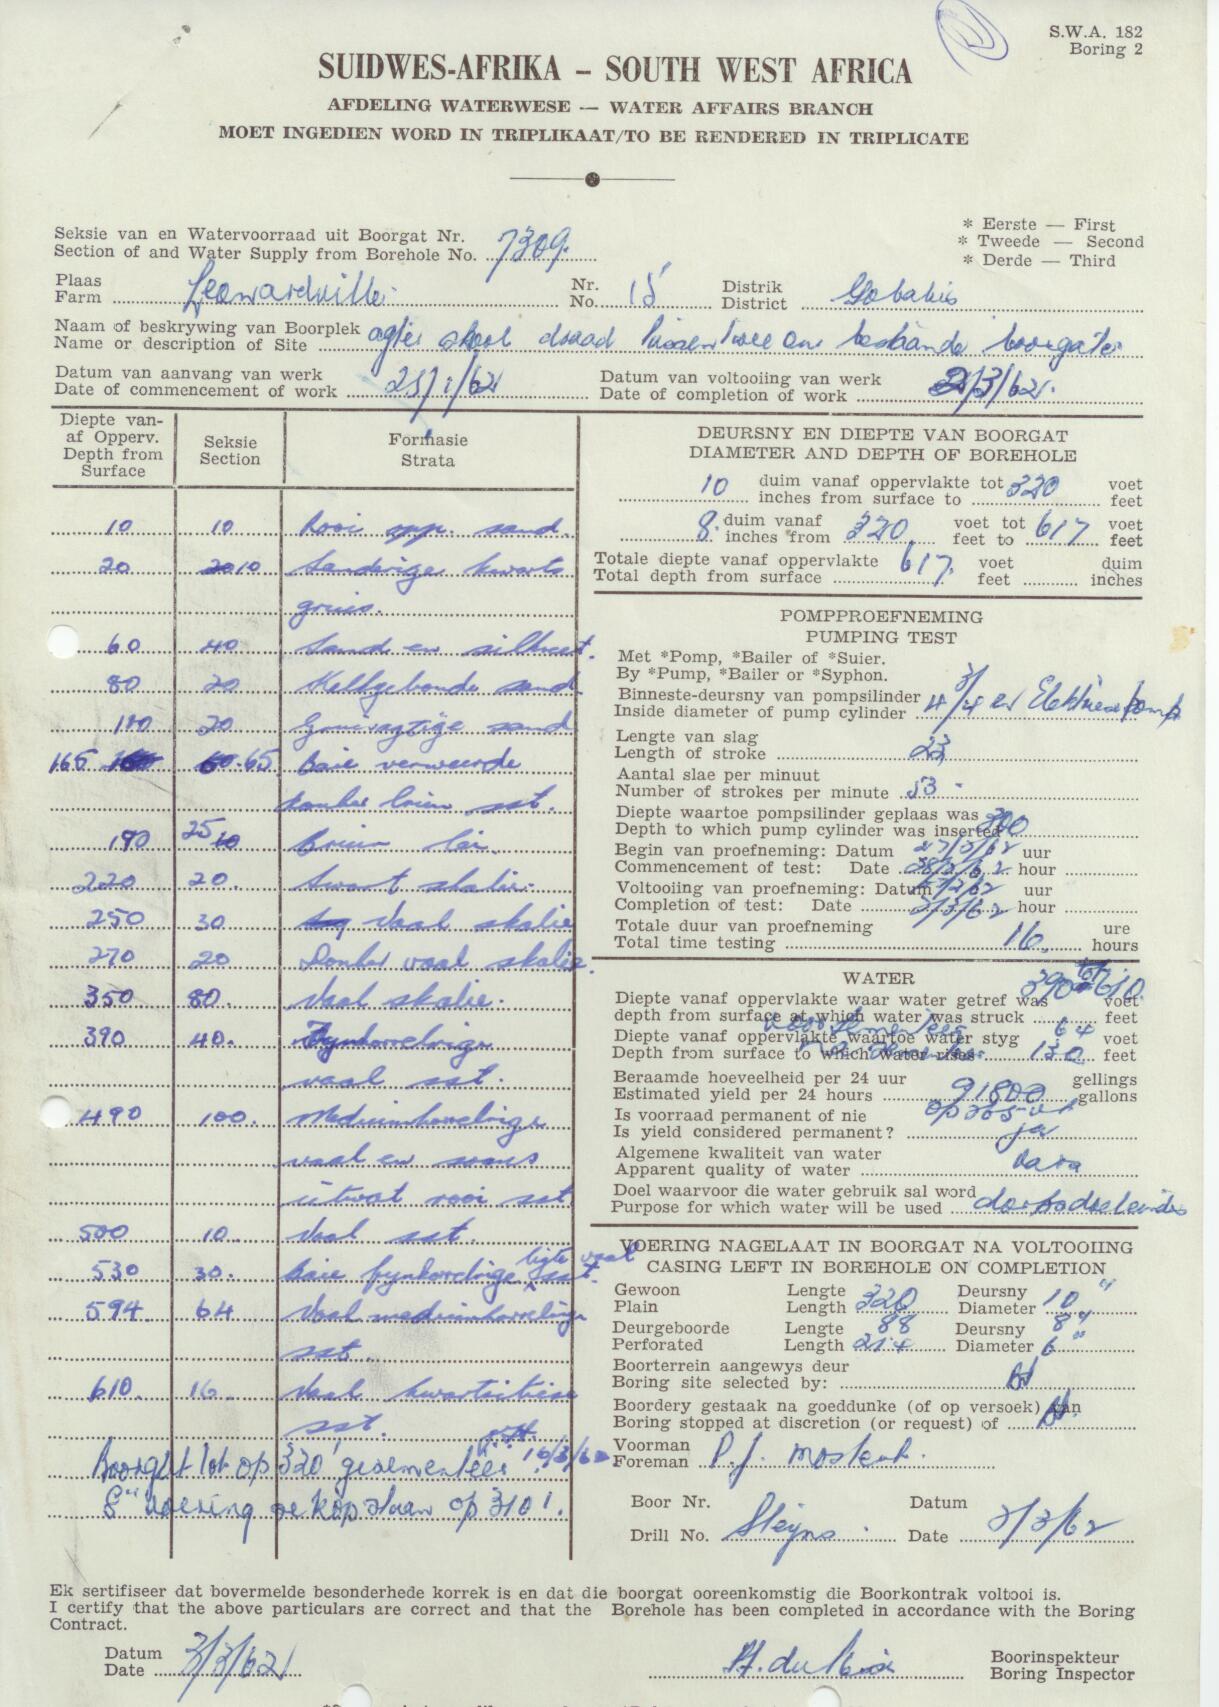 S.W.A. 182
Boring 2
SUIDWES-AFRIKA – SOUTH WEST AFRICA
AFDELING WATERWESE — WATER AFFAIRS BRANCH
MOET INGEDIEN WORD IN TRIPLIKAAT/TO BE RENDERED IN TRIPLICATE
* Eerste — First
* Tweede — Second
* Derde — Third
Seksie van en Watervoorraad uit Boorgat Nr.
Section of and Water Supply from Borehole No. 7309.
Plaas Nr. Distrik
Farm Leonardville No. 15 District Gobabis
Naam of beskrywing van Boorplek
Name or description of Site agter skool draad tussen twee ou bestaande boorgate
Datum van aanvang van werk Datum van voltooiing van werk
Date of commencement of work 25/1/62 Date of completion of work 2/3/62.
Diepte van-
af Opperv.
Depth from
Surface
Seksie
Section
Formasie
Strata
10 10 Rooi opp. sand.
20 10 Sanderige kwarts
gruis.
60 40 Sand en silkreet.
80 20 Kalkgebonde sand
20 Gruisagtige sand
165 65 Baie verweerde
donker bruin sst.
190 25 Bruin
220 20. Swart skalie.
250 30 Vaal skalie
270 20 Donker vaal skalie.
350 80. Vaal skalie.
390 40. Fynkorrelrige
vaal sst.
490 100. Mediumkorrelrige
vaal en soms
rooi sst.
500 10. Vaal sst.
530 30. Baie fynkorrelrige ligte vaal sst.
594. 64 Vaal mediumkorrelrige
sst.
610 16. Vaal kwartsitiese
sst.
Boorgat tot op 320' gesementeer 16/3/62
8" voering se kop staan op 310'.
DEURSNY EN DIEPTE VAN BOORGAT
DIAMETER AND DEPTH OF BOREHOLE
duim vanaf oppervlakte tot voet
10 inches from surface to 320 feet
duim vanaf voet tot voet
8. inches from 320 feet to 617 feet
Totale diepte vanaf oppervlakte voet duim
Total depth from surface 617. feet inches
POMPPROEFNEMING
PUMPING TEST
Met *Pomp, *Bailer of *Suier.
By *Pump, *Bailer or *Syphon.
Binneste-deursny van pompsilinder
Inside diameter of pump cylinder 4 3/4 en Elektriese pomp
Lengte van slag
Length of stroke 23
Aantal slae per minuut
Number of strokes per minute 53
Diepte waartoe pompsilinder geplaas was
Depth to which pump cylinder was inserted 300
Begin van proefneming: Datum uur
Commencement of test: Date hour
Voltooiing van proefneming: Datum uur
Completion of test: Date 2/3/62 hour
Totale duur van proefneming ure
Total time testing 16. hours
WATER
Diepte vanaf oppervlakte waar water getref was 390 tot 610. voet
depth from surface at which water was struck feet
Diepte vanaf oppervlakte waartoe water styg 64 voet
Depth from surface to which water rises 130 feet
Beraamde hoeveelheid per 24 uur gellings
Estimated yield per 24 hours 91800 gallons
Is voorraad permanent of nie
Is yield considered permanent? ja
Algemene kwaliteit van water
Apparent quality of water
Doel waarvoor die water gebruik sal word
Purpose for which water will be used
VOERING NAGELAAT IN BOORGAT NA VOLTOOIING
CASING LEFT IN BOREHOLE ON COMPLETION
Gewoon Lengte Deursny
Plain Length 320 Diameter 10"
Deurgeboorde Lengte 88 Deursny 8"
Perforated Length 214 Diameter 6"
Boorterrein aangewys deur
Boring site selected by:
Boordery gestaak na goeddunke (of op versoek) van
Boring stopped at discretion (or request) of
Voorman
Foreman P. J. Mostert.
Boor Nr. Datum
Drill No. Steyns Date 2/3/62
Ek sertifiseer dat bovermelde besonderhede korrek is en dat die boorgat ooreenkomstig die Boorkontrak voltooi is.
I certify that the above particulars are correct and that the Borehole has been completed in accordance with the Boring
Contract.
Datum Boorinspekteur
Date 3/3/62 Boring Inspector